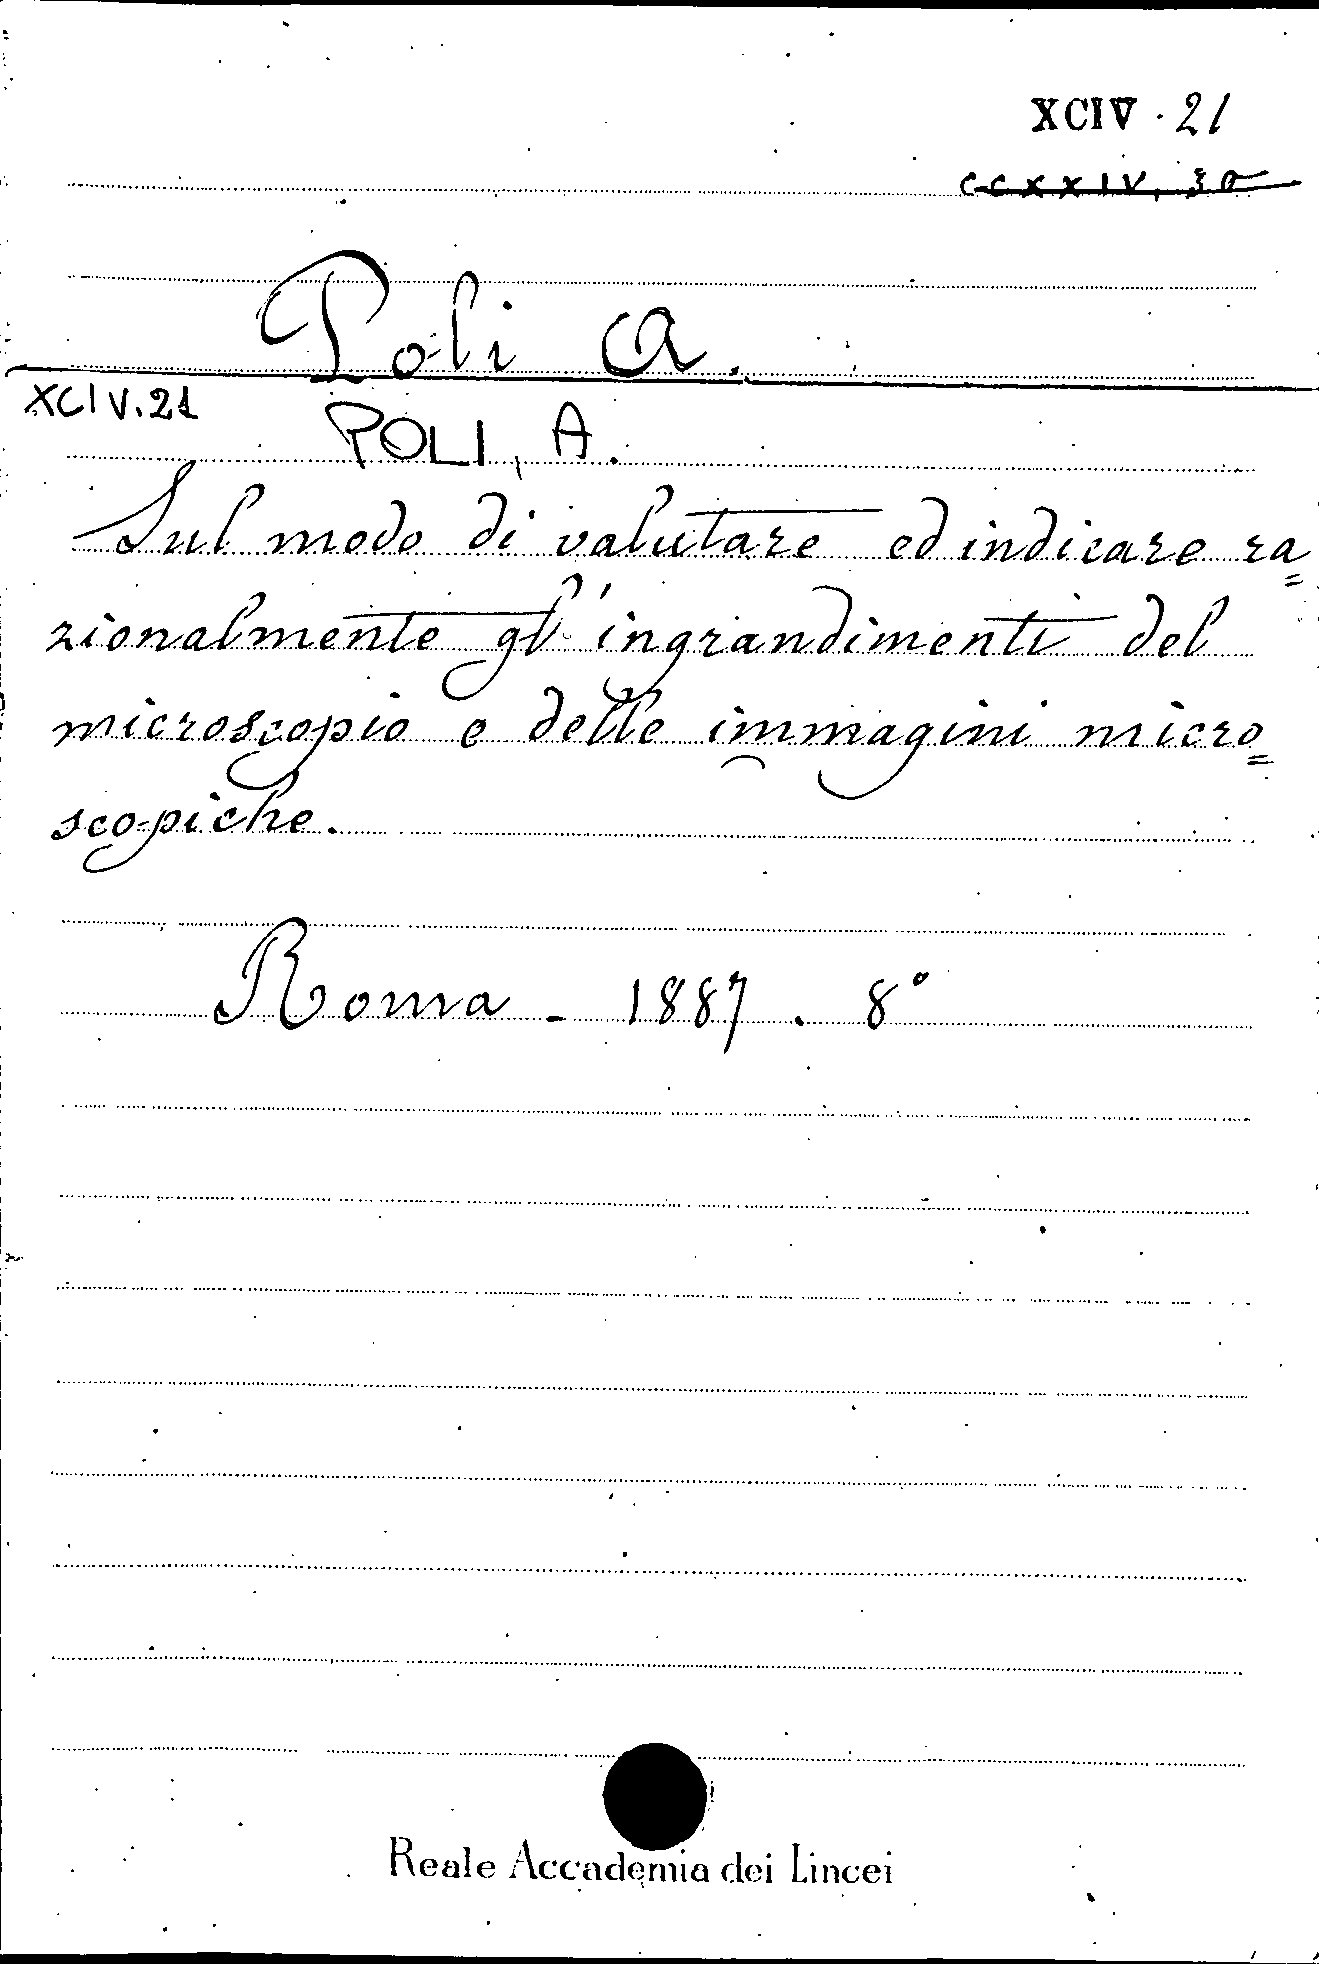 XCIV · 21
CCXXIV, 30
Poli A.
XCIV.21
POLI, A.
Sul modo di valutare ed indicare ra=
zionalmente gl'ingrandimenti del
microscopio e delle immagini micro=
scopiche.
Roma - 1887. 8°
Reale Accademia dei Lincei